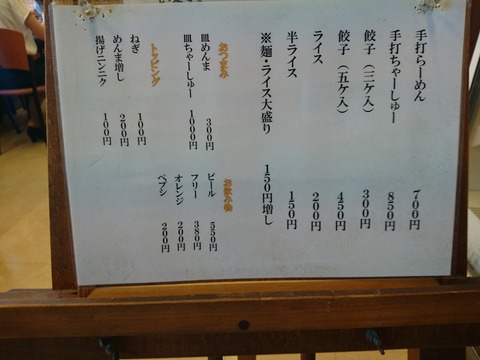 手打らーめん 700円
手打ちゃーしゅー 850円
餃子（三ケ入） 300円
餃子（五ケ入） 450円
ライス 200円
半ライス 150円
※麺・ライス大盛り 150円増し
おつまみ
皿めんま 300円
皿ちゃーしゅー 1000円
トッピング
ねぎ 100円
めんま増し 200円
揚げニンニク 100円
お飲み物
ビール 550円
フリー 380円
オレンジ 200円
ペプシ 200円